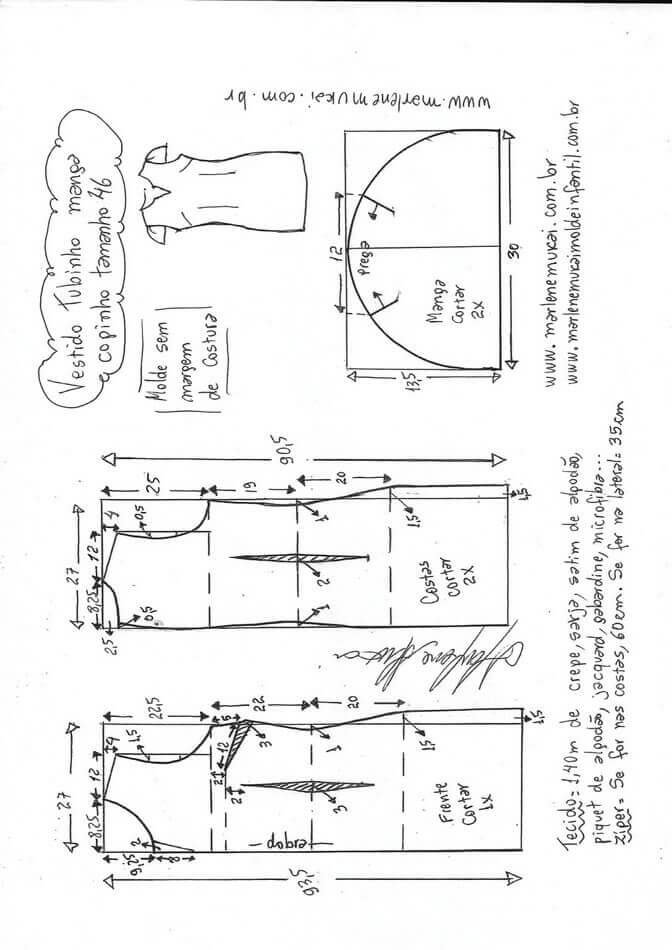 Vestido Tubinho manga
copinho tamanho 46
Molde sem
margem
de Costura
www.marlenemukai.com.br
12
Prega
Manga
Cortar
2x
30
13,5
www.marlenemukai.com.br
www.marlenemukaimoldeinfantil.com.br
90,5
25
19
20
4
0,5
27
12
8,25
2,5
0,5
1
1
2
1,5
1,5
Costas
cortar
2x
93,5
22,5
22
20
4
1,5
5
27
12
8,25
9,25
8
2
12
2
2
3
3
1
1,5
1,5
dobra
Frente
Cortar
1x
Tecido= 1,40m de crepe, sarja, satim de algodão,
piquet de algodão, jacquard, gabardine, microfibra...
Zíper= Se for nas costas, 60cm. Se for na lateral= 35cm